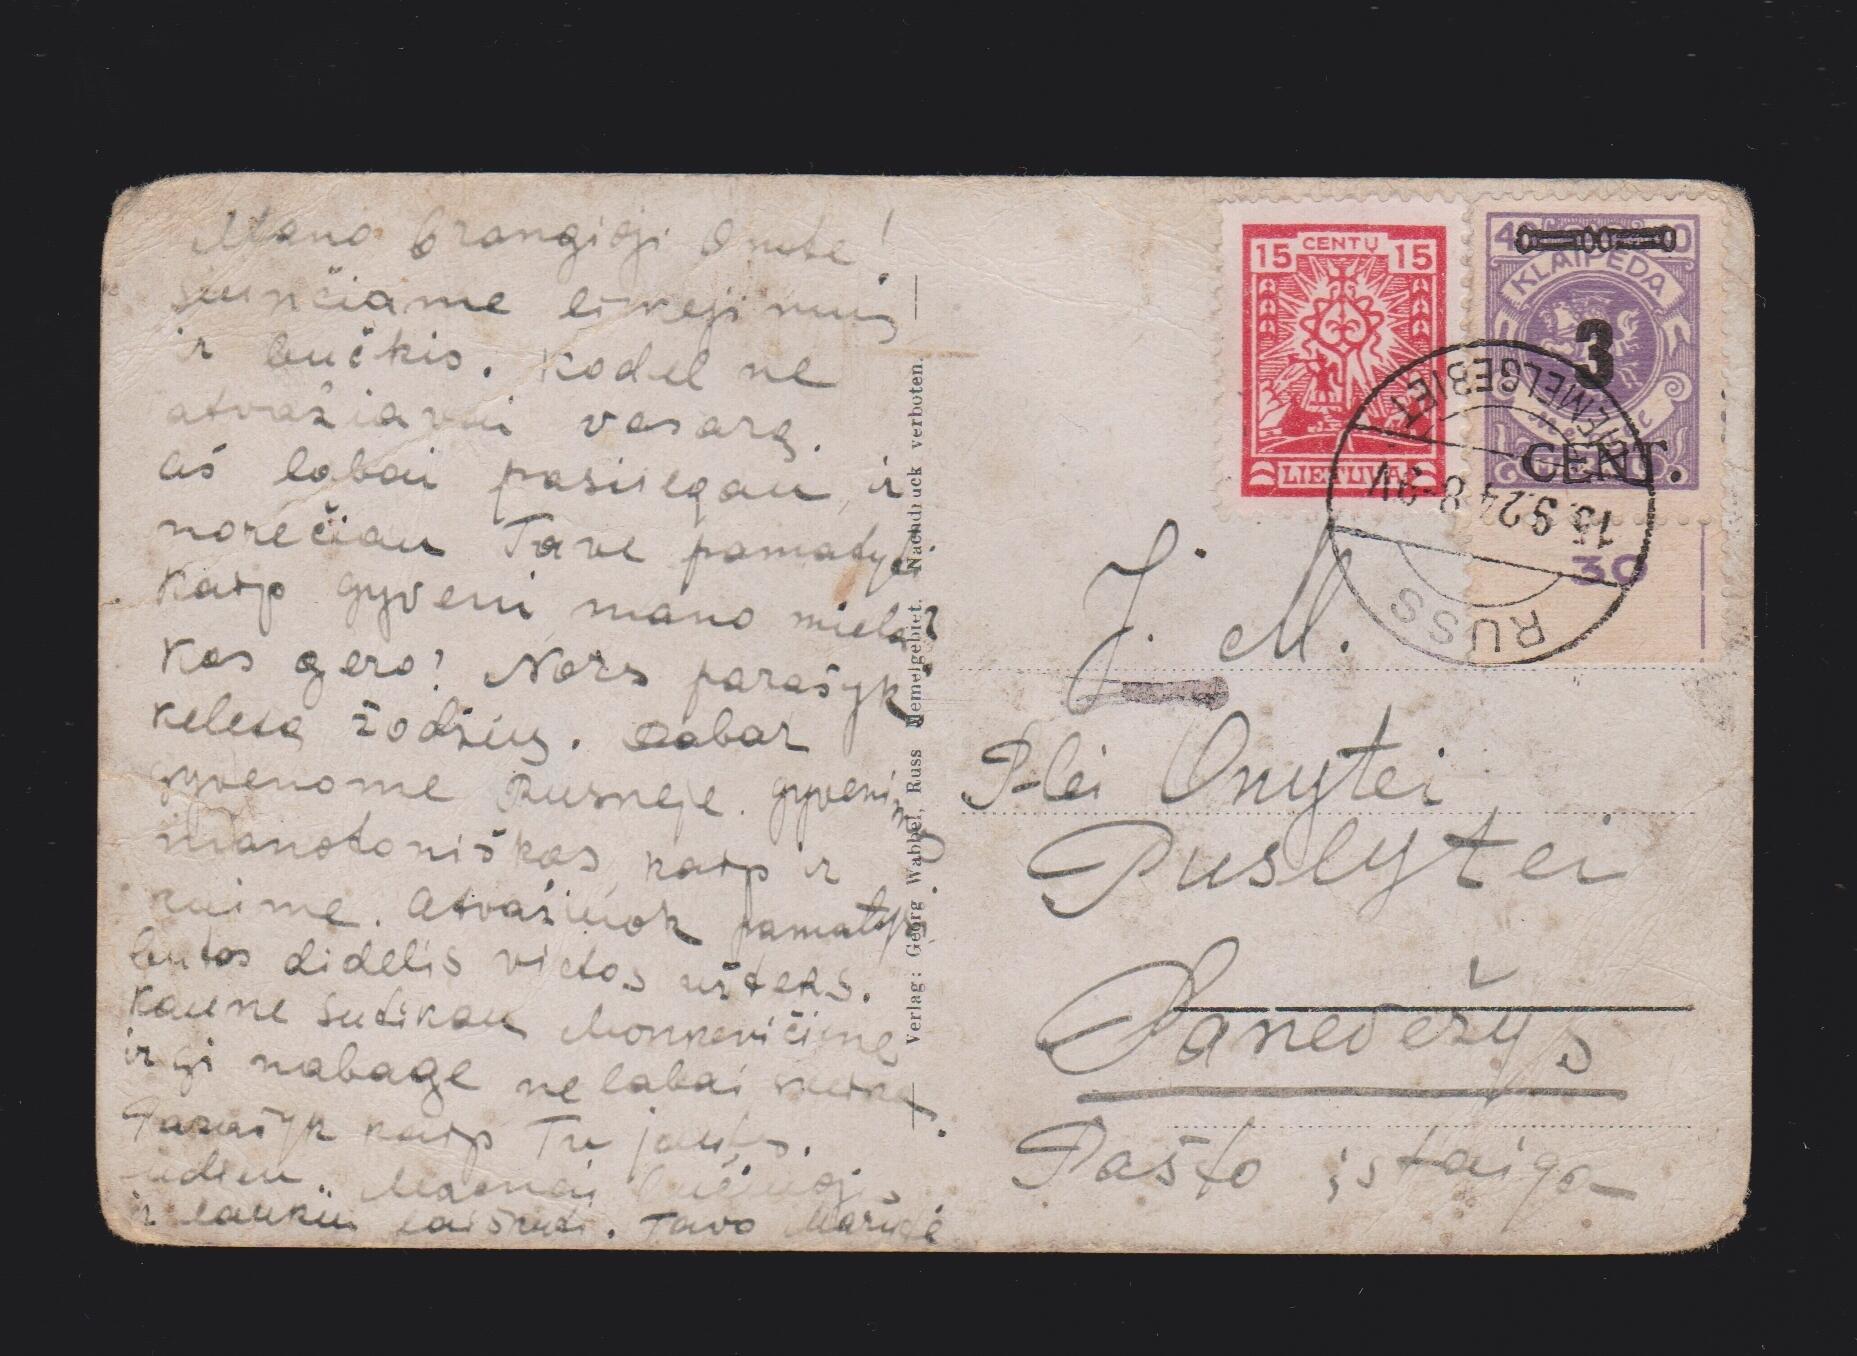 Mano brangioji Onute!
siunčiame linkėjimus
ir bučkis. Kodel ne
atvažiavai vasarą.
aš labai pasiilgau ir
norečiau Tave pamatyti
Kaip gyveni mano miela?
Kas gero? Nors parašyk
keletą žodžių. Dabar
gyvenome Rusneje. gyvenimas
manotoniškas, kaip ir
kaime. Atvažiuok pamatysi
butas didelis vietos užteks.
Kaune sutikau Monkevičienę
irgi nabagė nelabai
Parašyk kaip Tu jauties.
ir laukiu laiškuti. Tavo Marytė
Verlag: Georg Wabbel, Russ Memelgebiet. Nachdruck verboten.
15 CENTŲ 15
LIETUVA
KLAIPĖDA
3
CENT.
30
(MEMELGEBIET)
15.9.24. 8-9V
RUSS
J. M.
P-lei Onytei
Puslytei
Panevežys
Pašto įstaiga